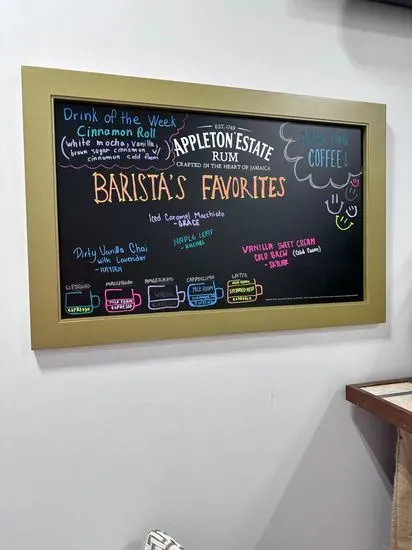 Drink of the Week
Cinnamon Roll
(white mocha, vanilla,
brown sugar cinnamon w/
cinnamon cold foam)
EST. 1749
APPLETON ESTATE
RUM
CRAFTED IN THE HEART OF JAMAICA
COFFEE!
BARISTA'S FAVORITES
Iced Caramel Macchiato
- GRACE
MAPLE LEAF
- RACHEL
Dirty Vanilla Chai
with Lavender
- HAYDEN
VANILLA SWEET CREAM
COLD BREW (Cold Foam)
- SKYLAR
ESPRESSO
MACCHIATO
AMERICANO
CAPPUCCINO
LATTE
ESPRESSO
MILK FOAM
ESPRESSO
MILK FOAM
ESPRESSO
MILK FOAM
STEAMED MILK
ESPRESSO